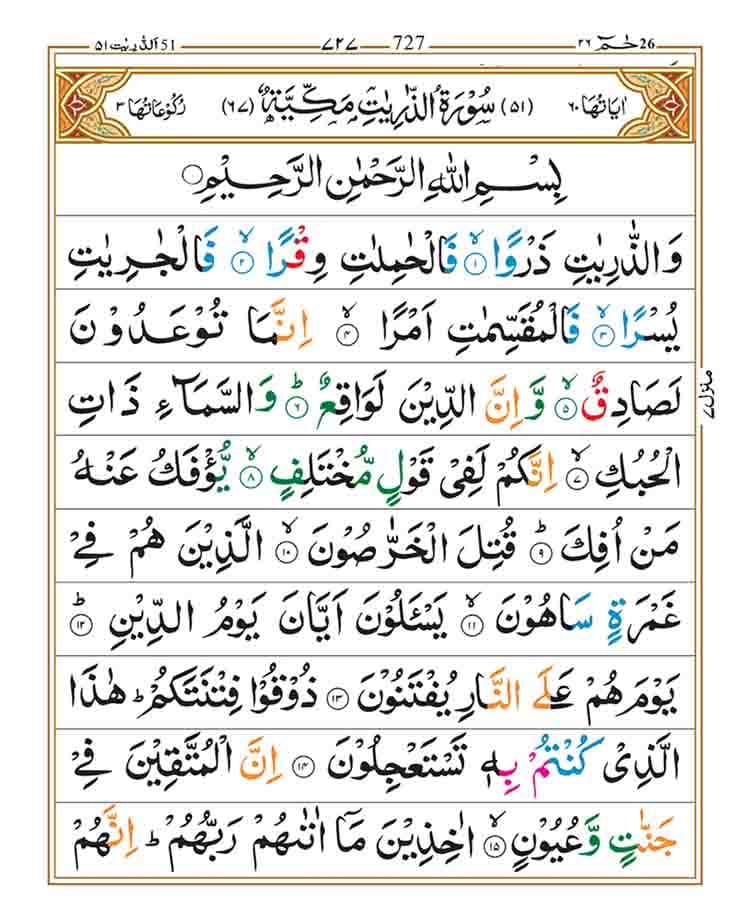 حٰمٓ 26 ٢٦ 727 ٧٢٧ الذّٰريٰت 51 ٥١
اٰيَاتُهَا ٦٠ (٥١) سُوْرَةُ الذّٰرِيٰتِ مَكِّيَّةٌ (٦٧) رُكُوْعَاتُهَا ٣
بِسْمِ اللّٰهِ الرَّحْمٰنِ الرَّحِيْمِ
وَالذّٰرِيٰتِ ذَرْوًا ۙ‏﴿١﴾ فَالْحٰمِلٰتِ وِقْرًا ۙ‏﴿٢﴾ فَالْجٰرِيٰتِ
يُسْرًا ۙ‏﴿٣﴾ فَالْمُقَسِّمٰتِ اَمْرًا ۙ‏﴿٤﴾ اِنَّمَا تُوْعَدُوْنَ
لَصَادِقٌ ۙ‏﴿٥﴾ وَّاِنَّ الدِّيْنَ لَوَاقِعٌ ؕ‏﴿٦﴾ وَالسَّمَآءِ ذَاتِ
الْحُبُكِ ۙ‏﴿٧﴾ اِنَّكُمْ لَفِيْ قَوْلٍ مُّخْتَلِفٍ ۙ‏﴿٨﴾ يُّؤْفَكُ عَنْهُ
مَنْ اُفِكَ ؕ‏﴿٩﴾ قُتِلَ الْخَرّٰصُوْنَ ۙ‏﴿١٠﴾ الَّذِيْنَ هُمْ فِيْ
غَمْرَةٍ سَاهُوْنَ ۙ‏﴿١١﴾ يَسْـَٔلُوْنَ اَيَّانَ يَوْمُ الدِّيْنِ ؕ‏﴿١٢﴾
يَوْمَ هُمْ عَلَى النَّارِ يُفْتَنُوْنَ ﴿١٣﴾ ذُوْقُوْا فِتْنَتَكُمْ ؕ هٰذَا
الَّذِيْ كُنْتُمْ بِهٖ تَسْتَعْجِلُوْنَ ﴿١٤﴾ اِنَّ الْمُتَّقِيْنَ فِيْ
جَنّٰتٍ وَّعُيُوْنٍ ۙ‏﴿١٥﴾ اٰخِذِيْنَ مَآ اٰتٰىهُمْ رَبُّهُمْ ؕ اِنَّهُمْ
منزل ٧